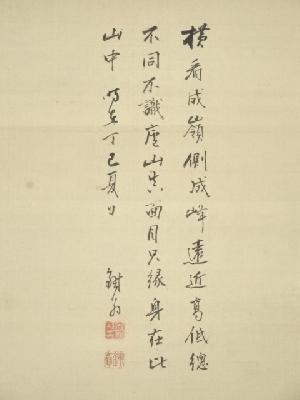 横看成嶺側成峰遠近高低總
不同不識廬山真面目只緣身在此
山中 時在丁巳夏日